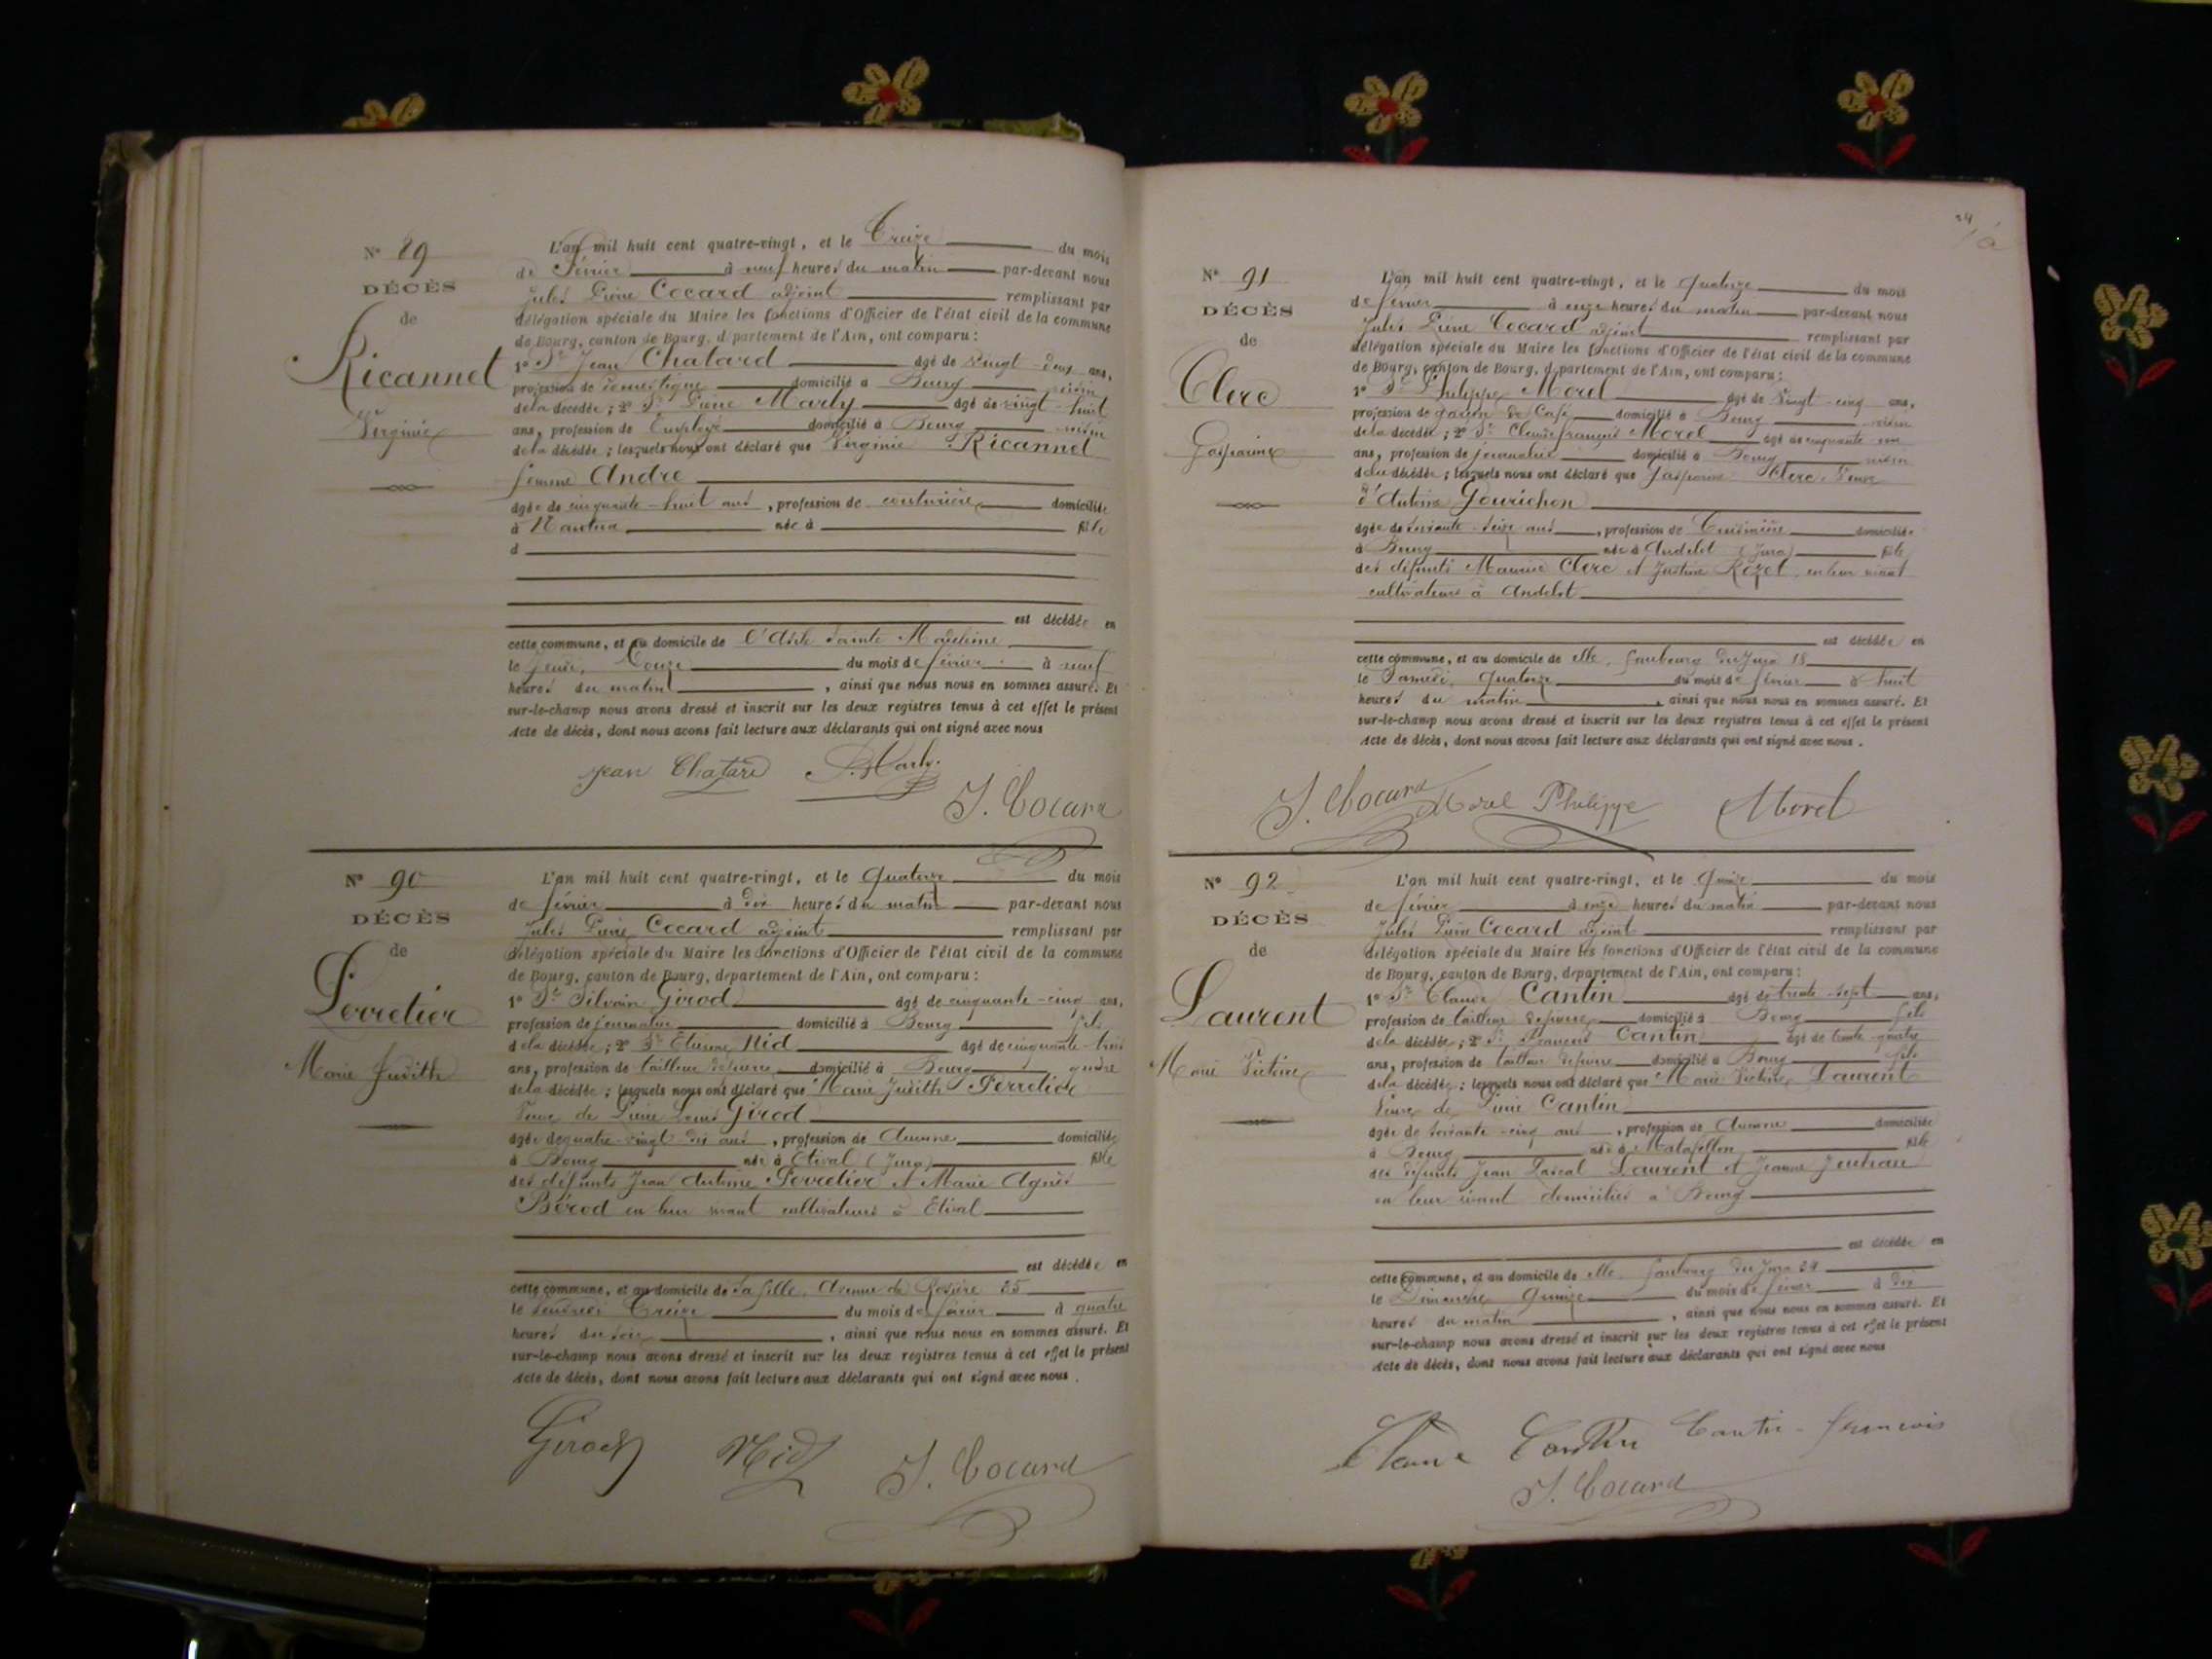 Nº 89
DÉCÈS
de
Ricannet
Virginie
L'an mil huit cent quatre-vingt, et le Treize du mois
de Février à neuf heures du matin par-devant nous
Jules Pierre Cocard adjoint remplissant par
délégation spéciale du Maire les fonctions d'Officier de l'état civil de la commune
de Bourg, canton de Bourg, département de l'Ain, ont comparu :
1º Sr Jean Chatard âgé de vingt-deux ans,
profession de domestique domicilié à Bourg voisin
de la décédée ; 2º Sr Pierre Marly âgé de vingt-huit
ans, profession de Employé domicilié à Bourg voisin
de la décédée ; lesquels nous ont déclaré que Virginie Ricannet
femme André
âgée de cinquante-huit ans, profession de couturière domiciliée
à Nantua née à fille
d
est décédée en
cette commune, et au domicile de l'Asile Sainte Madeleine
le Jeudi, Douze du mois de février à neuf
heures du matin, ainsi que nous nous en sommes assuré. Et
sur-le-champ nous avons dressé et inscrit sur les deux registres tenus à cet effet le présent
Acte de décès, dont nous avons fait lecture aux déclarants qui ont signé avec nous
Jean Chatard P. Marly. J. Cocard
Nº 90
DÉCÈS
de
Perretier
Marie Judith
L'an mil huit cent quatre-vingt, et le Quatorze du mois
de février à dix heures du matin par-devant nous
Jules Pierre Cocard adjoint remplissant par
délégation spéciale du Maire les fonctions d'Officier de l'état civil de la commune
de Bourg, canton de Bourg, département de l'Ain, ont comparu :
1º Sr Silvain Girod âgé de cinquante-cinq ans,
profession de journalier domicilié à Bourg fils
de la décédée ; 2º Sr Etienne Nid âgé de cinquante-trois
ans, profession de tailleur de pierres domicilié à Bourg gendre
de la décédée ; lesquels nous ont déclaré que Marie Judith Perretier
Veuve de Pierre Louis Girod
âgée de quatre-vingt-dix ans, profession de Aucune domiciliée
à Bourg née à Etival (Jura) fille
des défunts Jean Antoine Perretier et Marie Agnès
Bérod en leur vivant cultivateurs à Etival
est décédée en
cette commune, et au domicile de sa fille, Avenue de Rosière 25
le Vendredi Treize du mois de février à quatre
heures du soir, ainsi que nous nous en sommes assuré. Et
sur-le-champ nous avons dressé et inscrit sur les deux registres tenus à cet effet le présent
Acte de décès, dont nous avons fait lecture aux déclarants qui ont signé avec nous.
Girod Nid J. Cocard
Nº 91
DÉCÈS
de
Clerc
Gasparine
L'an mil huit cent quatre-vingt, et le Quatorze du mois
de février à onze heures du matin par-devant nous
Jules Pierre Cocard adjoint remplissant par
délégation spéciale du Maire les fonctions d'Officier de l'état civil de la commune
de Bourg, canton de Bourg, département de l'Ain, ont comparu :
1º Sr Philippe Morel âgé de Vingt-cinq ans,
profession de garçon de Café domicilié à Bourg voisin
de la décédée ; 2º Sr Claude françois Morel âgé de cinquante-un
ans, profession de journalier domicilié à Bourg voisin
de la décédée ; lesquels nous ont déclaré que Gasparine Clerc, Veuve
d'Antoine Gourichon
âgée de soixante-seize ans, profession de Cuisinière domiciliée
à Bourg née à Andelot (Jura) fille
des défunts Maurice Clerc et Justine Rozet, en leur vivant
cultivateurs à Andelot
est décédée en
cette commune, et au domicile de elle, faubourg du Jura 18
le Samedi, Quatorze du mois de février à huit
heures du matin, ainsi que nous nous en sommes assuré. Et
sur-le-champ nous avons dressé et inscrit sur les deux registres tenus à cet effet le présent
Acte de décès, dont nous avons fait lecture aux déclarants qui ont signé avec nous.
J. Cocard Morel Philippe Morel
Nº 92
DÉCÈS
de
Laurent
Marie Victoire
L'an mil huit cent quatre-vingt, et le Quinze du mois
de février à onze heures du matin par-devant nous
Jules Pierre Cocard adjoint remplissant par
délégation spéciale du Maire les fonctions d'Officier de l'état civil de la commune
de Bourg, canton de Bourg, département de l'Ain, ont comparu :
1º Sr Claude Cantin âgé de trente-sept ans,
profession de tailleur de pierres domicilié à Bourg fils
de la décédée ; 2º Sr François Cantin âgé de trente-quatre
ans, profession de tailleur de pierre domicilié à Bourg fils
de la décédée ; lesquels nous ont déclaré que Marie Victoire Laurent
Veuve de Pierre Cantin
âgée de soixante-cinq ans, profession de Aucune domiciliée
à Bourg née à Matafellon fille
des défunts Jean Pascal Laurent et Jeanne
en leur vivant domiciliés à Bourg
est décédée en
cette commune, et au domicile de elle faubourg du Jura 24
le Dimanche Quinze du mois de février à dix
heures du matin, ainsi que nous nous en sommes assuré. Et
sur-le-champ nous avons dressé et inscrit sur les deux registres tenus à cet effet le présent
Acte de décès, dont nous avons fait lecture aux déclarants qui ont signé avec nous
Claude Cantin Cantin françois
J. Cocard